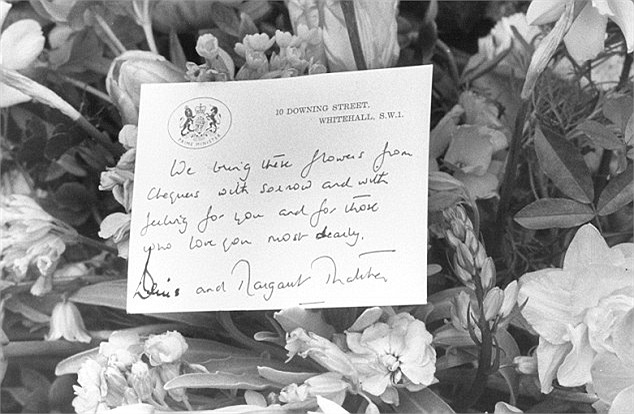 PRIME MINISTER
10 DOWNING STREET,
WHITEHALL, S.W.1.
We bring these flowers from
Chequers with sorrow and with
feeling for you and for those
who love you most dearly.
Denis and Margaret Thatcher